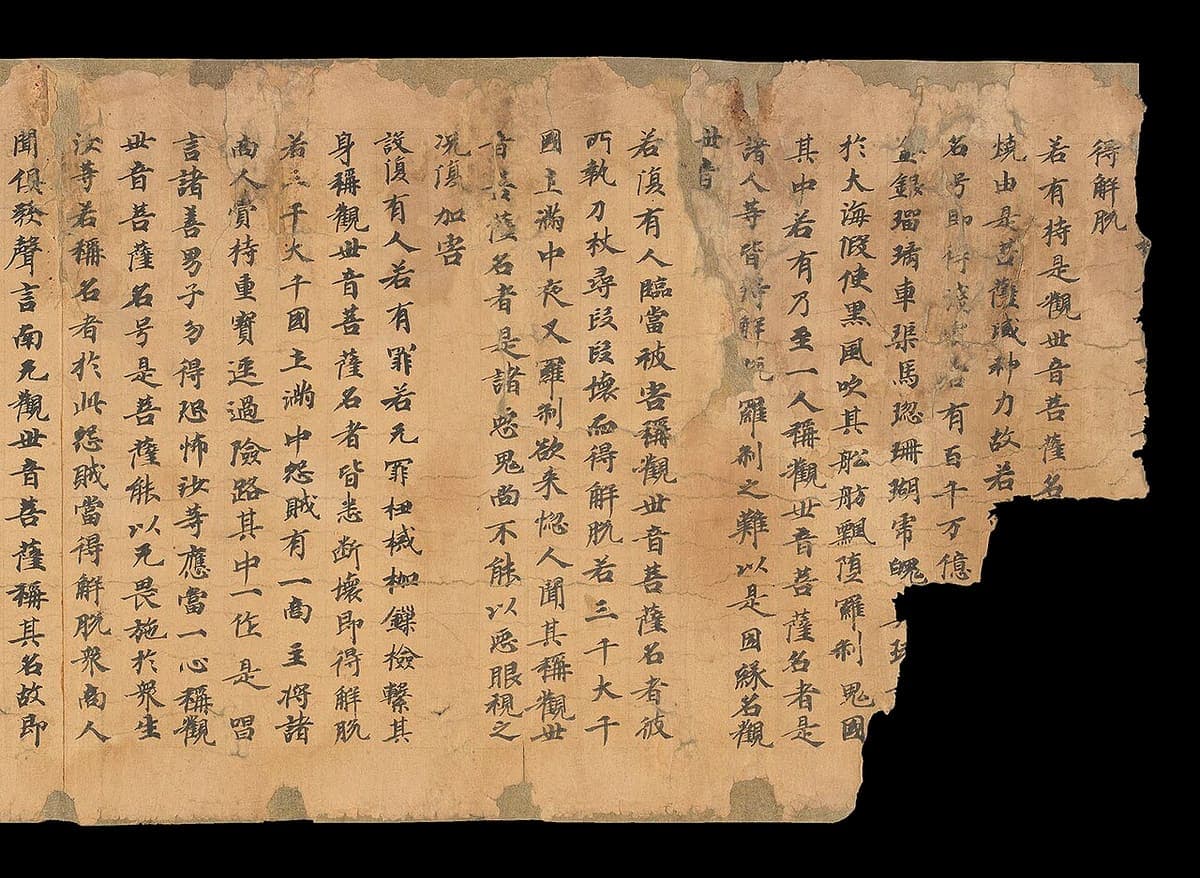 得解脱
若有持是觀世音菩薩名
燒由是菩薩威神力故若
名号即得淺處若有百千万億
金銀瑠璃車𤦲馬瑙珊瑚虎魄
於大海假使黑風吹其舩舫飄堕羅刹鬼國
其中若有乃至一人稱觀世音菩薩名者是
諸人等皆得解脱羅刹之難以是因緣名觀
世音
若復有人臨當被害稱觀世音菩薩名者彼
所執刀杖尋段段壞而得解脱若三千大千
國土滿中夜叉羅刹欲来惱人聞其稱觀世
音菩薩名者是諸惡鬼尚不能以惡眼視之
况復加害
設復有人若有罪若无罪杻械枷鏁檢繫其
身稱觀世音菩薩名者皆悉断壞即得解脱
若三千大千國土滿中怨賊有一商主将諸
商人賫持重寶逕過險路其中一人作是唱
言諸善男子勿得恐怖汝等應當一心稱觀
世音菩薩名号是菩薩能以无畏施於衆生
汝等若稱名者於此怨賊當得解脱衆商人
聞俱發聲言南无觀世音菩薩稱其名故即